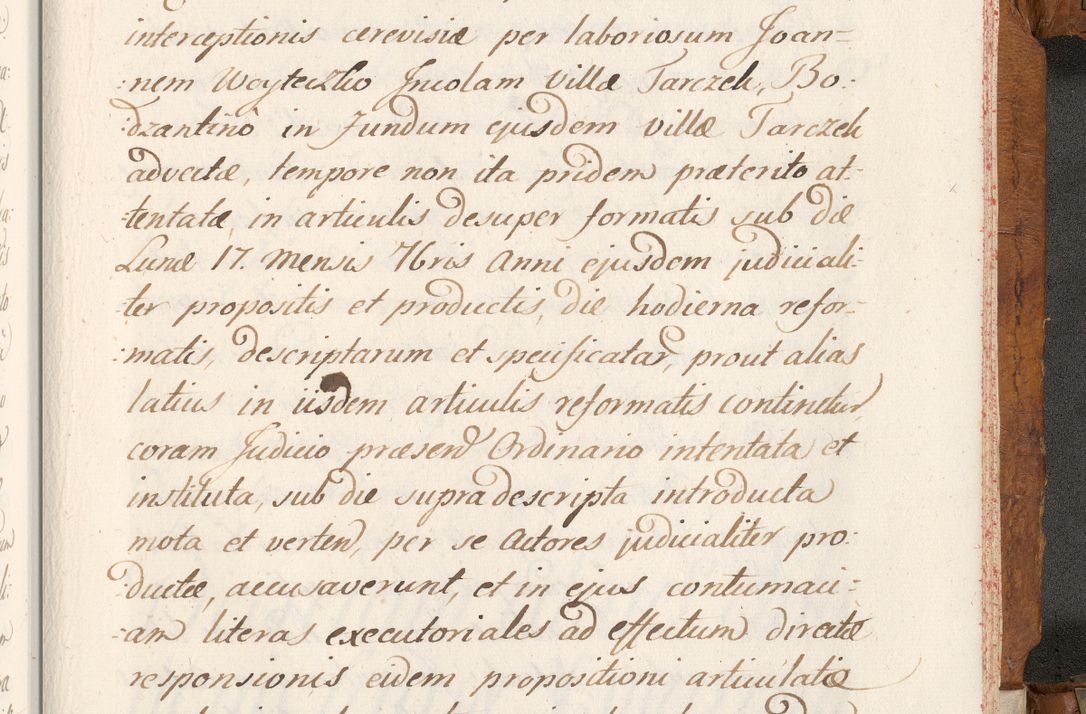 interceptionis cerevisiæ per laboriosum Joan=
:nem Woyteczko Incolam villæ Tarczek, Bo:
:dzantinô in fundum ejusdem villæ Tarczek
advectæ, tempore non ita pridem præterito at:
:tentatæ, in articulis desuper formatis sub die
Lunæ 17. Mensis 7bris Anni ejusdem judiciali:
:ter propositis et productis, die hodierna refor:
:matis, descriptarum et specificatar, prout alias
latius in iisdem articulis reformatis continetur
coram Judicio præsen Ordinario intentata et
instituta, sub die supra descripta introducta
mota et verten, per se Actores judicialiter pro:
:ductæ, accusaverunt, et in ejus contumaci:
:am literas executoriales ad effectum directæ
responsionis eidem propositioni articulatæ